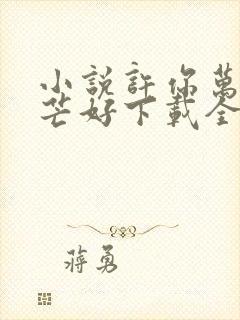 小說許你萬
芒好下載全
蔣勇